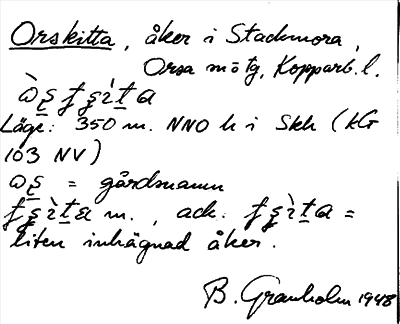 Orskitta, åker i Stackmora,
Orsa mötg, Kopparb. l.
Läge: 350 m. NNO h i Skh (kG
103 NV)
= gårdsnamn
m., ack.
liten inhägnad åker.
B. Granholm 1948